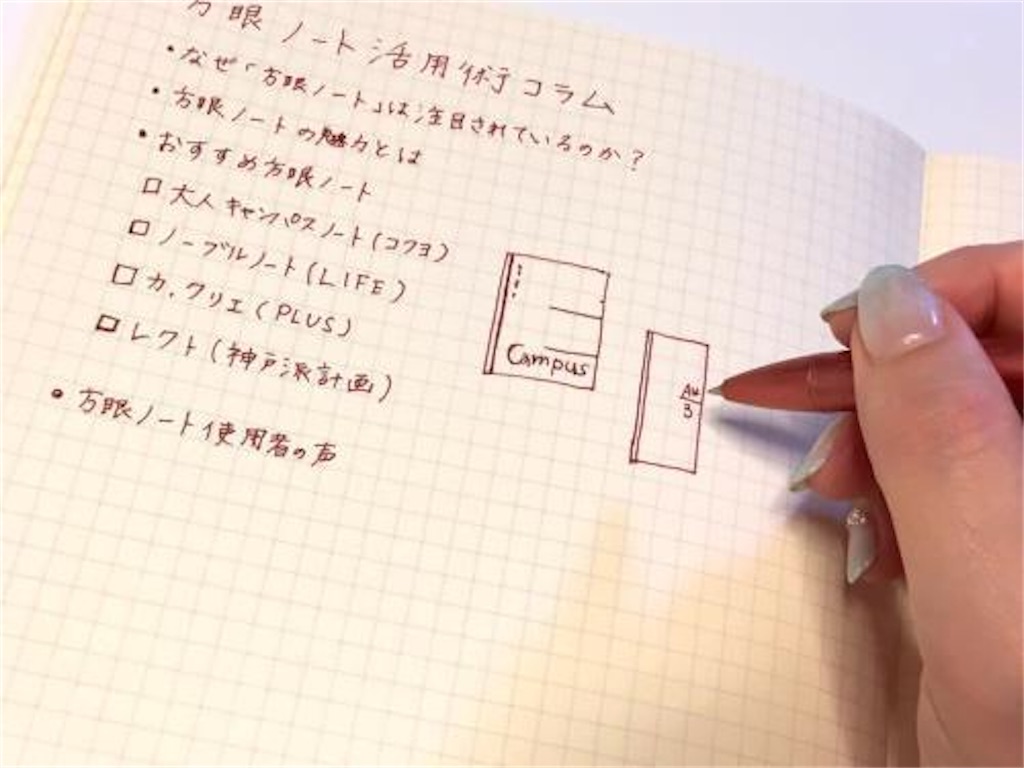 方眼ノート活用術コラム
・なぜ「方眼ノート」は注目されているのか?
・方眼ノートの魅力とは
・おすすめ方眼ノート
□ 大人キャンパスノート(コクヨ)
□ ノーブルノート(LIFE)
□ カ.クリエ(PLUS)
□ レクト(神戸派計画)
・方眼ノート使用者の声
Campus
A4
3